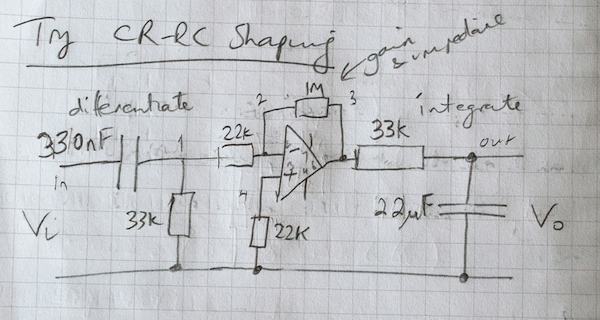 Try CR-RC Shaping
gain
& impedance
differentiate
2
1M
3
integrate
330nF
1
22k
33k
out
in
Vi
33k
4
22K
22μF
Vo